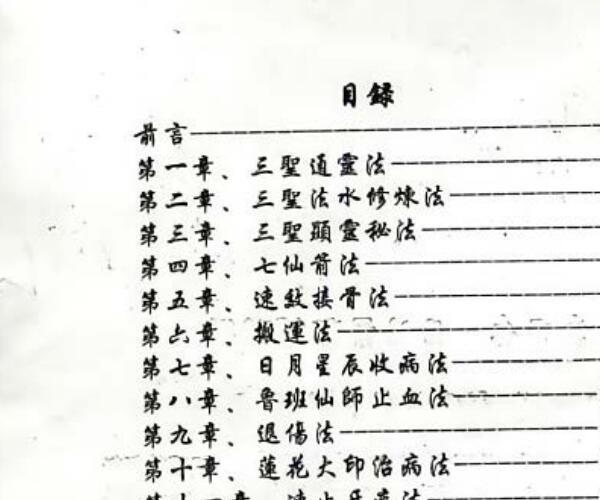 目錄
前言
第一章、三聖通靈法
第二章、三聖法水修煉法
第三章、三聖顯靈秘法
第四章、七仙箭法
第五章、速效接骨法
第六章、搬運法
第七章、日月星辰收病法
第八章、魯班仙師止血法
第九章、退傷法
第十章、蓮花大印治病法